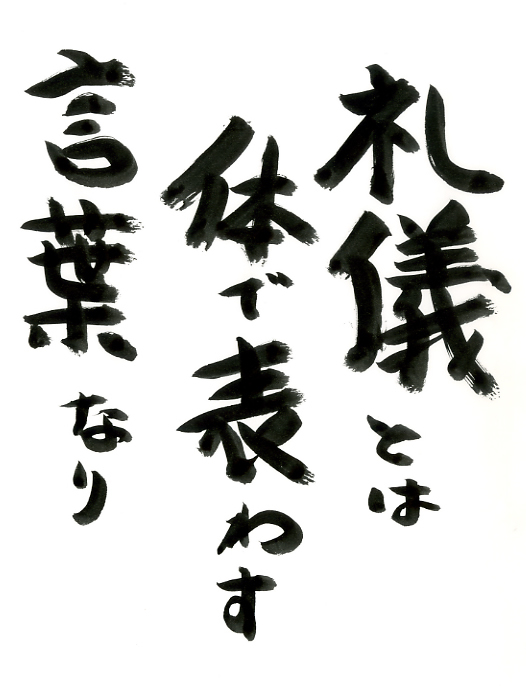 礼儀とは
体で表わす
言葉なり